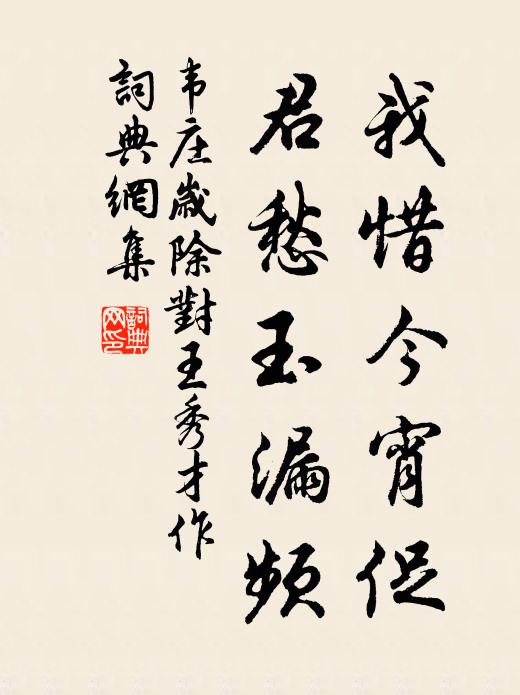 我惜今宵促
君愁玉漏頻
韦庄歲除對王秀才作
詞典網集
詞典网印